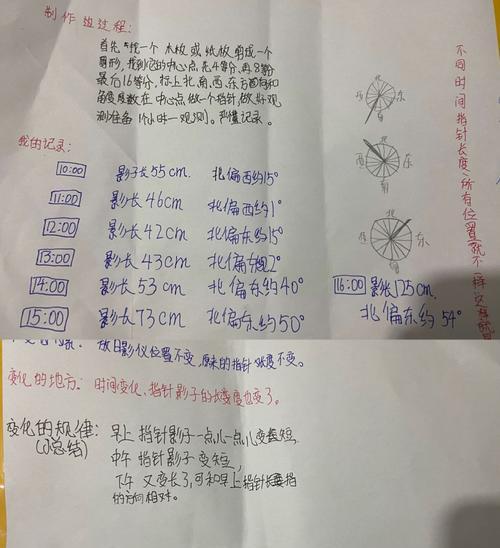 制作的过程:
首先 找一个 木板 或 纸板 剪成一个
圆形,找到它的中心点 先4等分,再8等分
最后16等分,标上北,南,西,东方向和
角度度数在 中心点 做一个指针,做好观
测准备 1小时一观测。并懂记录。
北
西 东
南
北
西 东
南
北
西 东
南
我的记录:
10:00 影子长55cm 北偏西约15°
11:00 影长46cm 北偏西约1°
12:00 影长42cm 北偏东约15°
13:00 影长43cm 北偏东 2°
14:00 影长53cm 北偏东约40°
15:00 影长73cm 北偏东约50°
16:00 影长125cm
北偏东约54°
不同时间指针长度,所有位置就不一样
日影仪位置不变,原来的指针长度不变。
变化的地方: 时间变化、指针影子的长度也变了。
变化的规律: 早上 指针影子一点儿一点儿变短,
(小总结) 中午 指针影子 变短,
下午 又变长了,可和早上指针 指
的方向相对。